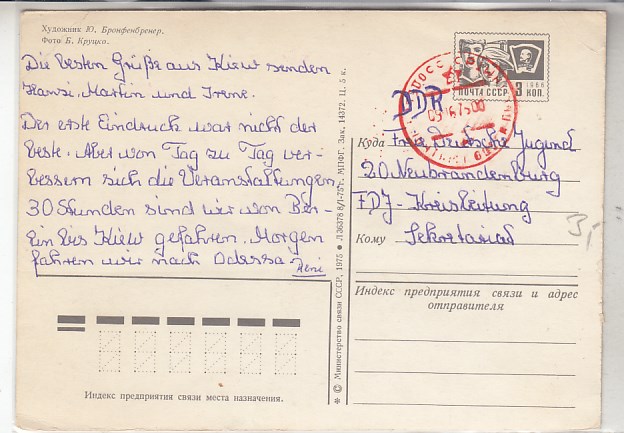 Художник Ю. Бронфенбренер.
Фото Б. Круцко.
Die besten Grüße aus Kiew senden
Hansi, Martin und Irene.
Der erste Eindruck war nicht der
beste. Aber von Tag zu Tag ver-
bessern sich die Veranstaltungen.
30 Stunden sind wir von Ber-
lin bis Kiew gefahren. Morgen
fahren wir nach Odessa.
Индекс предприятия связи места назначения.
* © Министерство связи СССР, 1975 • Л 36378 8/I-75 г. МПФГ. Зак. 14372. Ц. 5 к.
ПОЧТА СССР
1966
КОП.
DDR
Куда Freie Deutsche Jugend
20 Neubrandenburg
FDJ-Kreisleitung
Кому Sekretariat
Индекс предприятия связи и адрес
отправителя